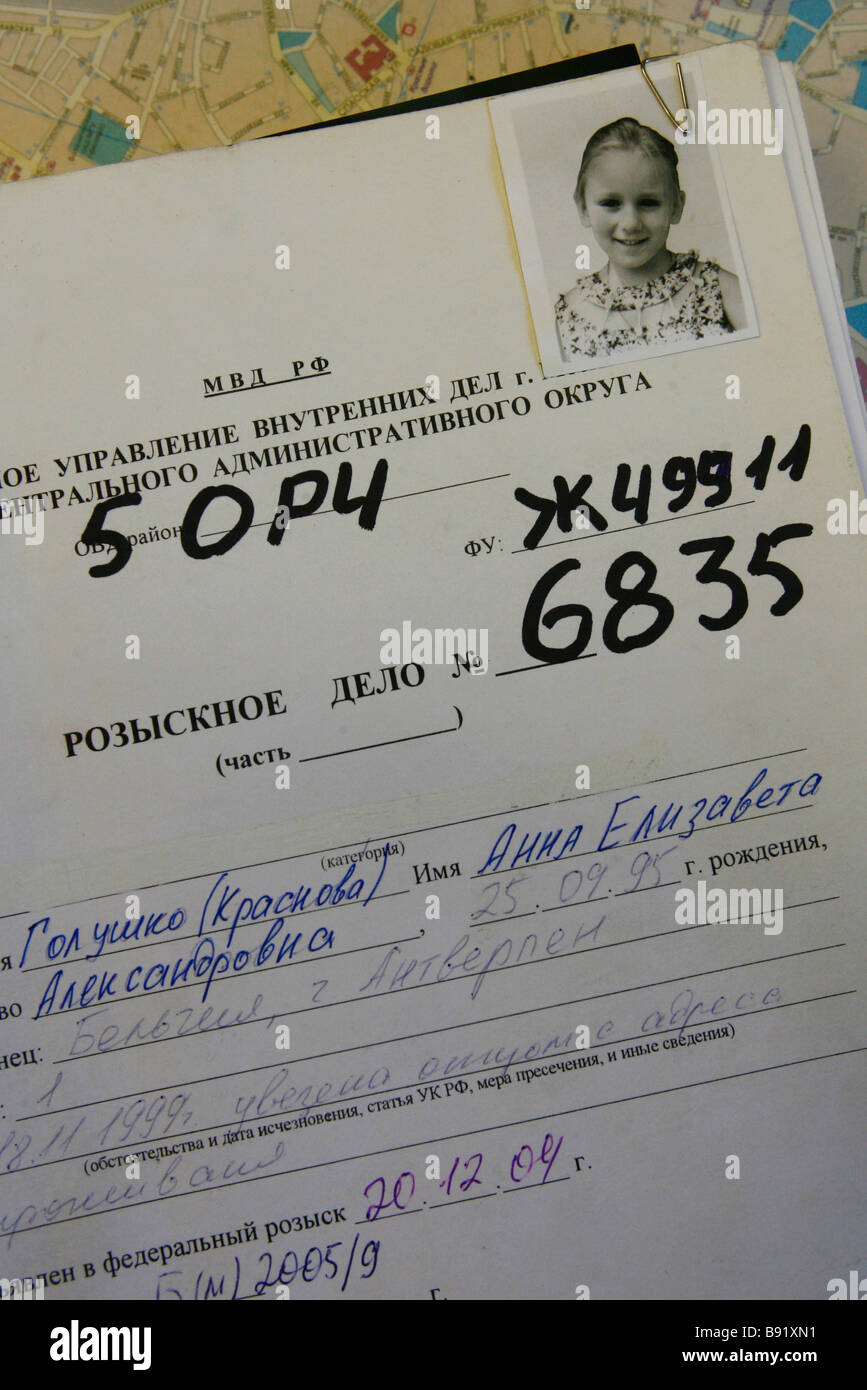 САДОВАЯ-ЧЕРНОГРЯЗСКАЯ
МВД РФ
НОЕ УПРАВЛЕНИЕ ВНУТРЕННИХ ДЕЛ г.
ЕНТРАЛЬНОГО АДМИНИСТРАТИВНОГО ОКРУГА
ОВД район 5 ОРЧ
ФУ: Ж49911
РОЗЫСКНОЕ ДЕЛО № 6835
(часть )
(категория)
я Голушко (Краснова) Имя Анна Елизавета
во Александровна , 25.09.95 г. рождения,
нец: Бельгия, г. Антверпен
: 1
18.11.1999г. увезена отцом с адреса
(обстоятельства и дата исчезновения, статья УК РФ, мера пресечения, и иные сведения)
проживания
явлен в федеральный розыск 20.12.04 г.
Б(м) 2005/9
г.
alamy
a
alamy
Image ID: B91XN1
www.alamy.com